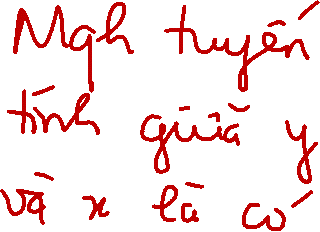 Mqh tuyến
tính giữa y
và x là có